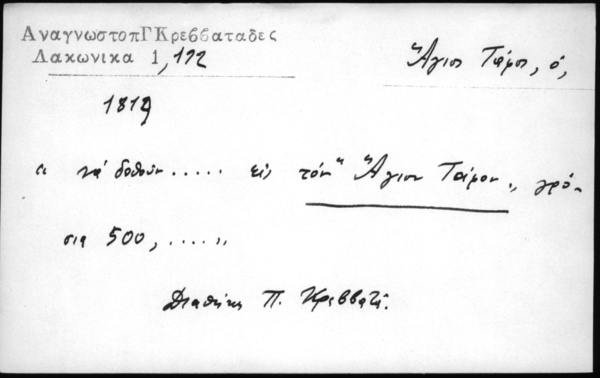 ΑναγνωστοπΓΚρεββαταδες
Λακωνικα 1,192
Ἅγιος Τάφος, ὁ,
1819
« νά δοθοῦν ..... εἰς τόν " Ἅγιον Τάφον ,, γρό-
σια 500, .... ,,
Διαθήκη Π. Κρεββατᾶ.